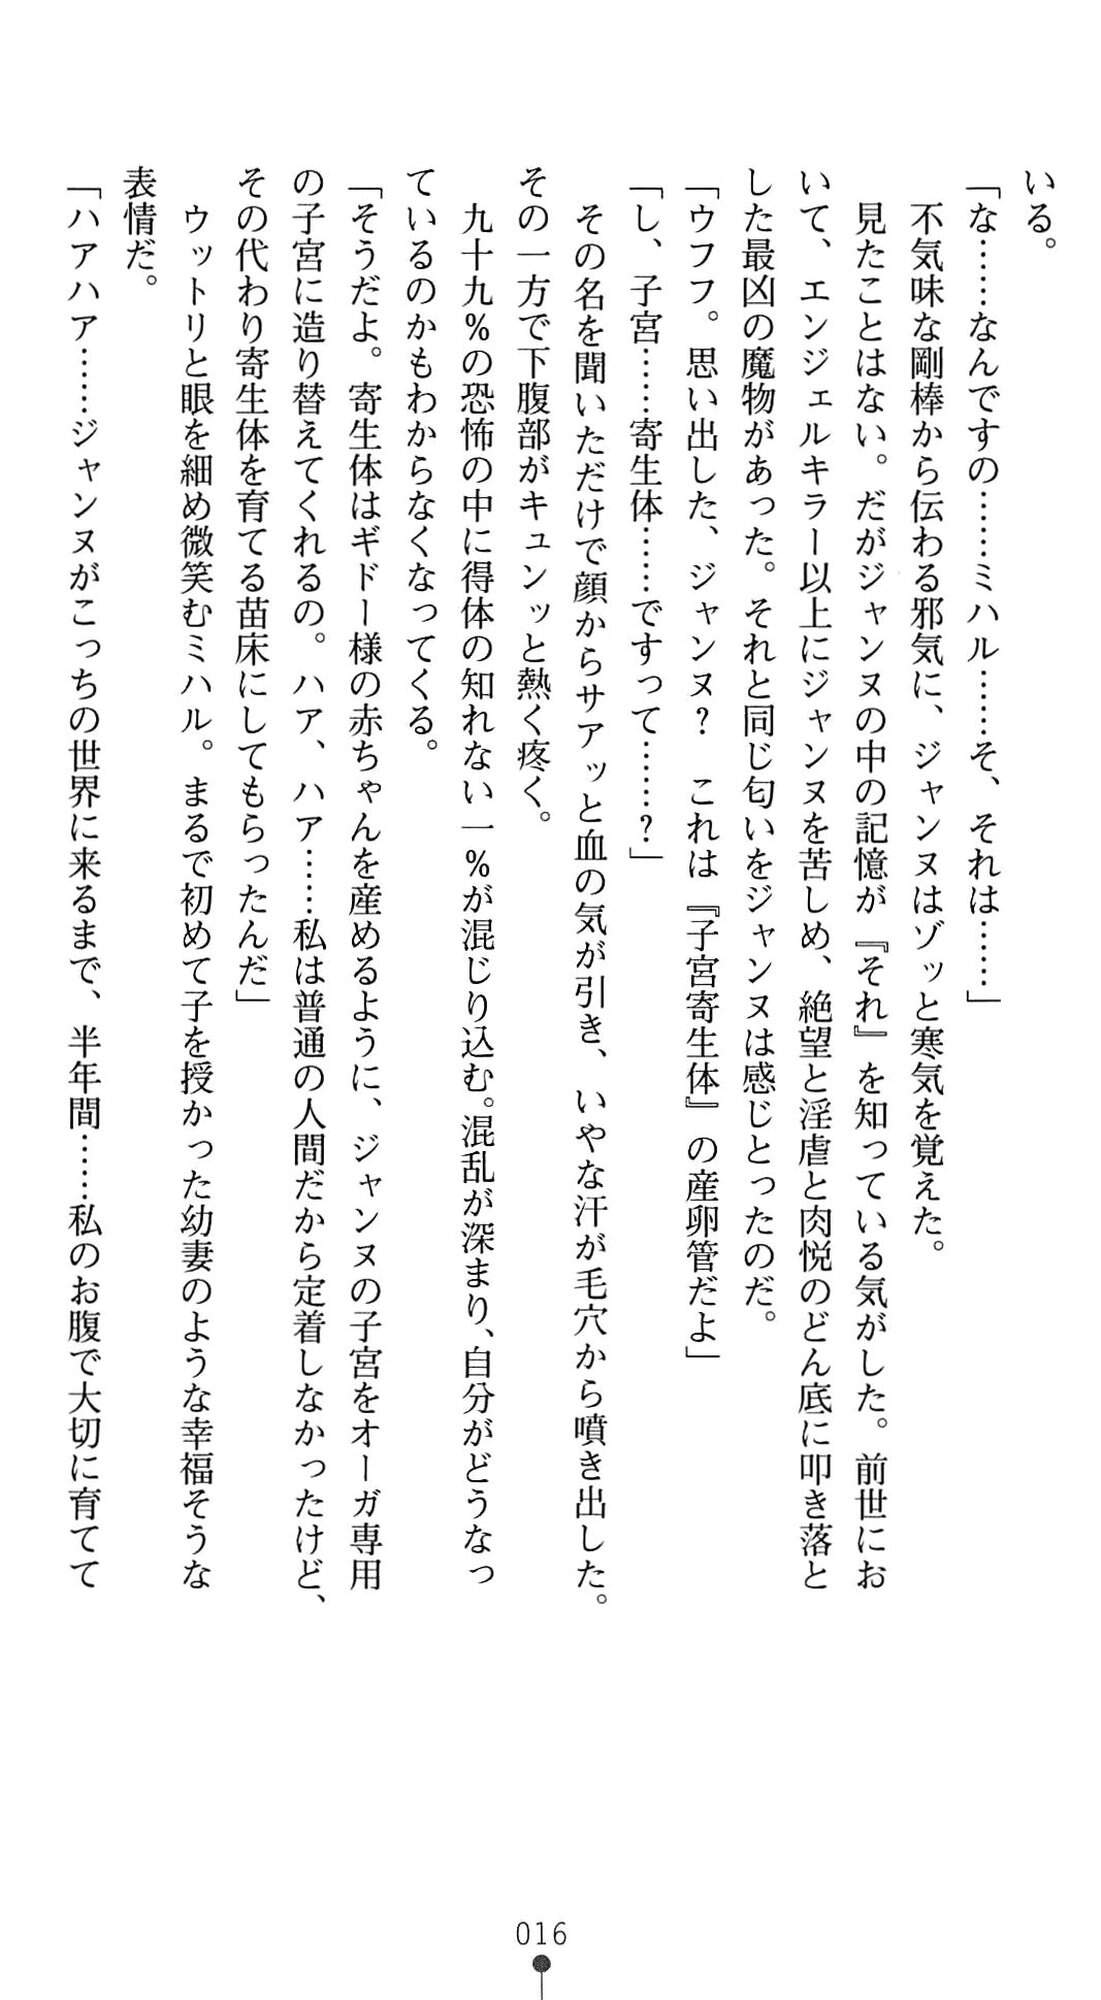 いる。
「な……なんですの……ミハル……そ、それは……」
　不気味な剛棒から伝わる邪気に、ジャンヌはゾッと寒気を覚えた。
　見たことはない。だがジャンヌの中の記憶が『それ』を知っている気がした。前世にお
いて、エンジェルキラー以上にジャンヌを苦しめ、絶望と淫虐と肉悦のどん底に叩き落と
した最凶の魔物があった。それと同じ匂いをジャンヌは感じとったのだ。
「ウフフ。思い出した、ジャンヌ？　これは『子宮寄生体』の産卵管だよ」
「し、子宮……寄生体……ですって……？」
　その名を聞いただけで顔からサアッと血の気が引き、いやな汗が毛穴から噴き出した。
その一方で下腹部がキュンッと熱く疼く。
　九十九％の恐怖の中に得体の知れない一％が混じり込む。混乱が深まり、自分がどうなっ
ているのかもわからなくなってくる。
「そうだよ。寄生体はギドー様の赤ちゃんを産めるように、ジャンヌの子宮をオーガ専用
の子宮に造り替えてくれるの。ハア、ハア……私は普通の人間だから定着しなかったけど、
その代わり寄生体を育てる苗床にしてもらったんだ」
　ウットリと眼を細め微笑むミハル。まるで初めて子を授かった幼妻のような幸福そうな
表情だ。
「ハアハア……ジャンヌがこっちの世界に来るまで、半年間……私のお腹で大切に育てて
016